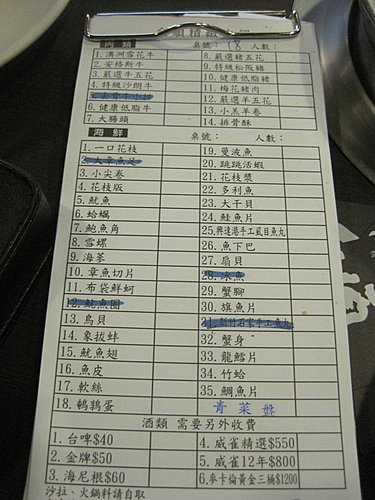 肉類 桌號： 18 人數：
1. 澳洲雪花牛
2. 安格斯牛
3. 嚴選牛五花
4. 特級沙朗牛
6. 健康低脂牛
7. 大腸頭
8. 嚴選豬五花
9. 特級松阪豬
10. 健康低脂豬
11. 梅花豬肉
12. 嚴選羊五花
13. 小羔羊卷
14. 排骨酥
海鮮 桌號： 人數：
1. 一口花枝
2. 大章魚足
3. 小尖卷
4. 花枝版
5. 魷魚
6. 蛤蠣
7. 鮑魚角
8. 雪螺
9. 海蔘
10. 章魚切片
11. 布袋鮮蚵
12. 魷魚圈
13. 鳥貝
14. 象拔蚌
15. 魷魚翅
16. 魚皮
17. 軟絲
18. 鵪鶉蛋
19. 曼波魚
20. 跳跳活蝦
21. 花枝漿
22. 多利魚
23. 大干貝
24. 鮭魚片
25. 興達港手工虱目魚丸
26. 魚下巴
27. 扇貝
28. 水魚
29. 蟹腳
30. 旗魚片
31. 新竹石家手工魚丸
32. 蟹身
33. 龍鱈片
34. 竹蛤
35. 鯛魚片
青菜盤
酒類 需要另外收費
1. 台啤$40
2. 金牌$50
3. 海尼根$60
4. 威雀精選$550
5. 威雀12年$800
6. 麥卡倫黃金三桶$1200
沙拉、火鍋料請自取